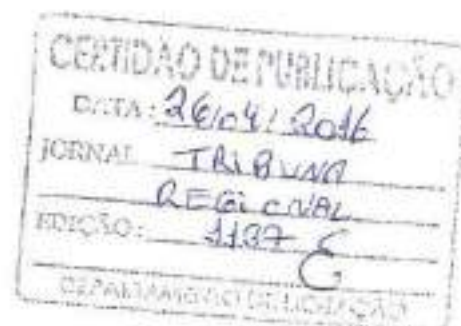 CERTIDÃO DE PUBLICAÇÃO
DATA: 26/04/2016
JORNAL TRIBUNA
REGIONAL
EDIÇÃO: 1137
DEPARTAMENTO DE LICITAÇÃO